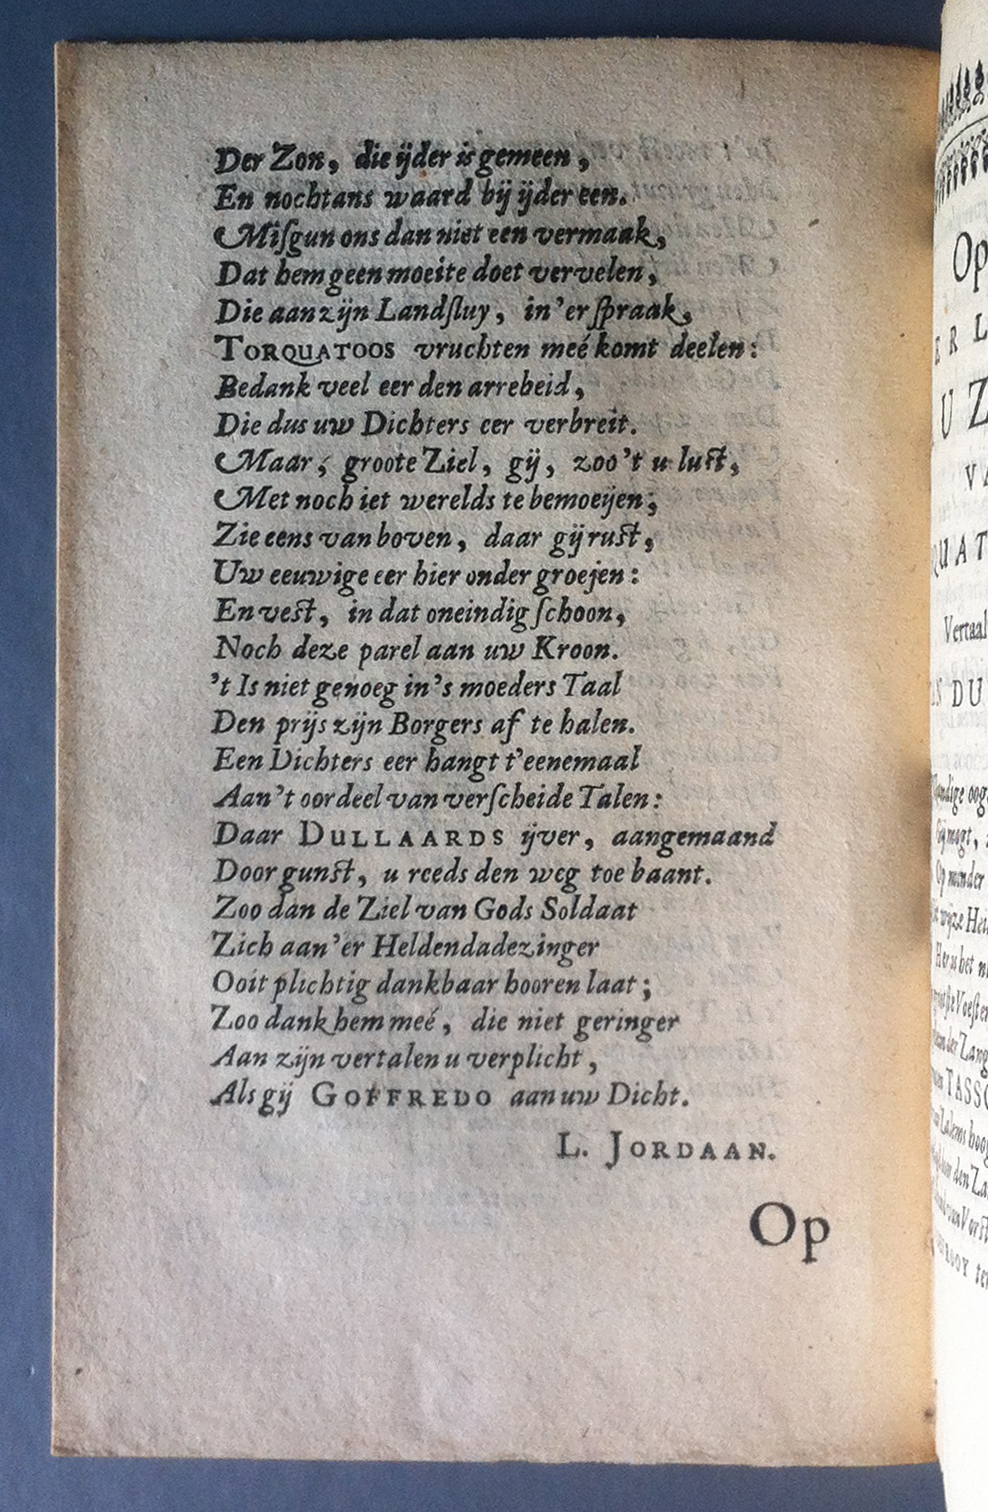 Der Zon, die ijder is gemeen,
En nochtans waard bij ijder een.
Miſgun ons dan niet een vermaak,
Dat hem geen moeite doet vervelen,
Die aan zijn Landſluy, in 'er ſpraak,
TORQUATOOS vruchten meé komt deelen:
Bedank veel eer den arrebeid,
Die dus uw Dichters eer verbreit.
Maar, groote Ziel, gij, zoo 't u luſt,
Met noch iet werelds te bemoeijen;
Zie eens van boven, daar gij ruſt,
Uw eeuwige eer hier onder groejen:
En veſt, in dat oneindig ſchoon,
Noch deze parel aan uw Kroon.
't Is niet genoeg in 's moeders Taal
Den prijs zijn Borgers af te halen.
Een Dichters eer hangt t'eenemaal
Aan 't oordeel van verſcheide Talen:
Daar DULLAARDS ijver, aangemaand
Door gunſt, u reeds den weg toe baant.
Zoo dan de Ziel van Gods Soldaat
Zich aan 'er Heldendadezinger
Ooit plichtig dankbaar hooren laat;
Zoo dank hem meé, die niet geringer
Aan zijn vertalen u verplicht,
Als gij GOFFREDO aan uw Dicht.
L. JORDAAN.
Op
Op
ER L
U Z
VA
QUAT
Vertaal
S DU
Op minder
TASSO